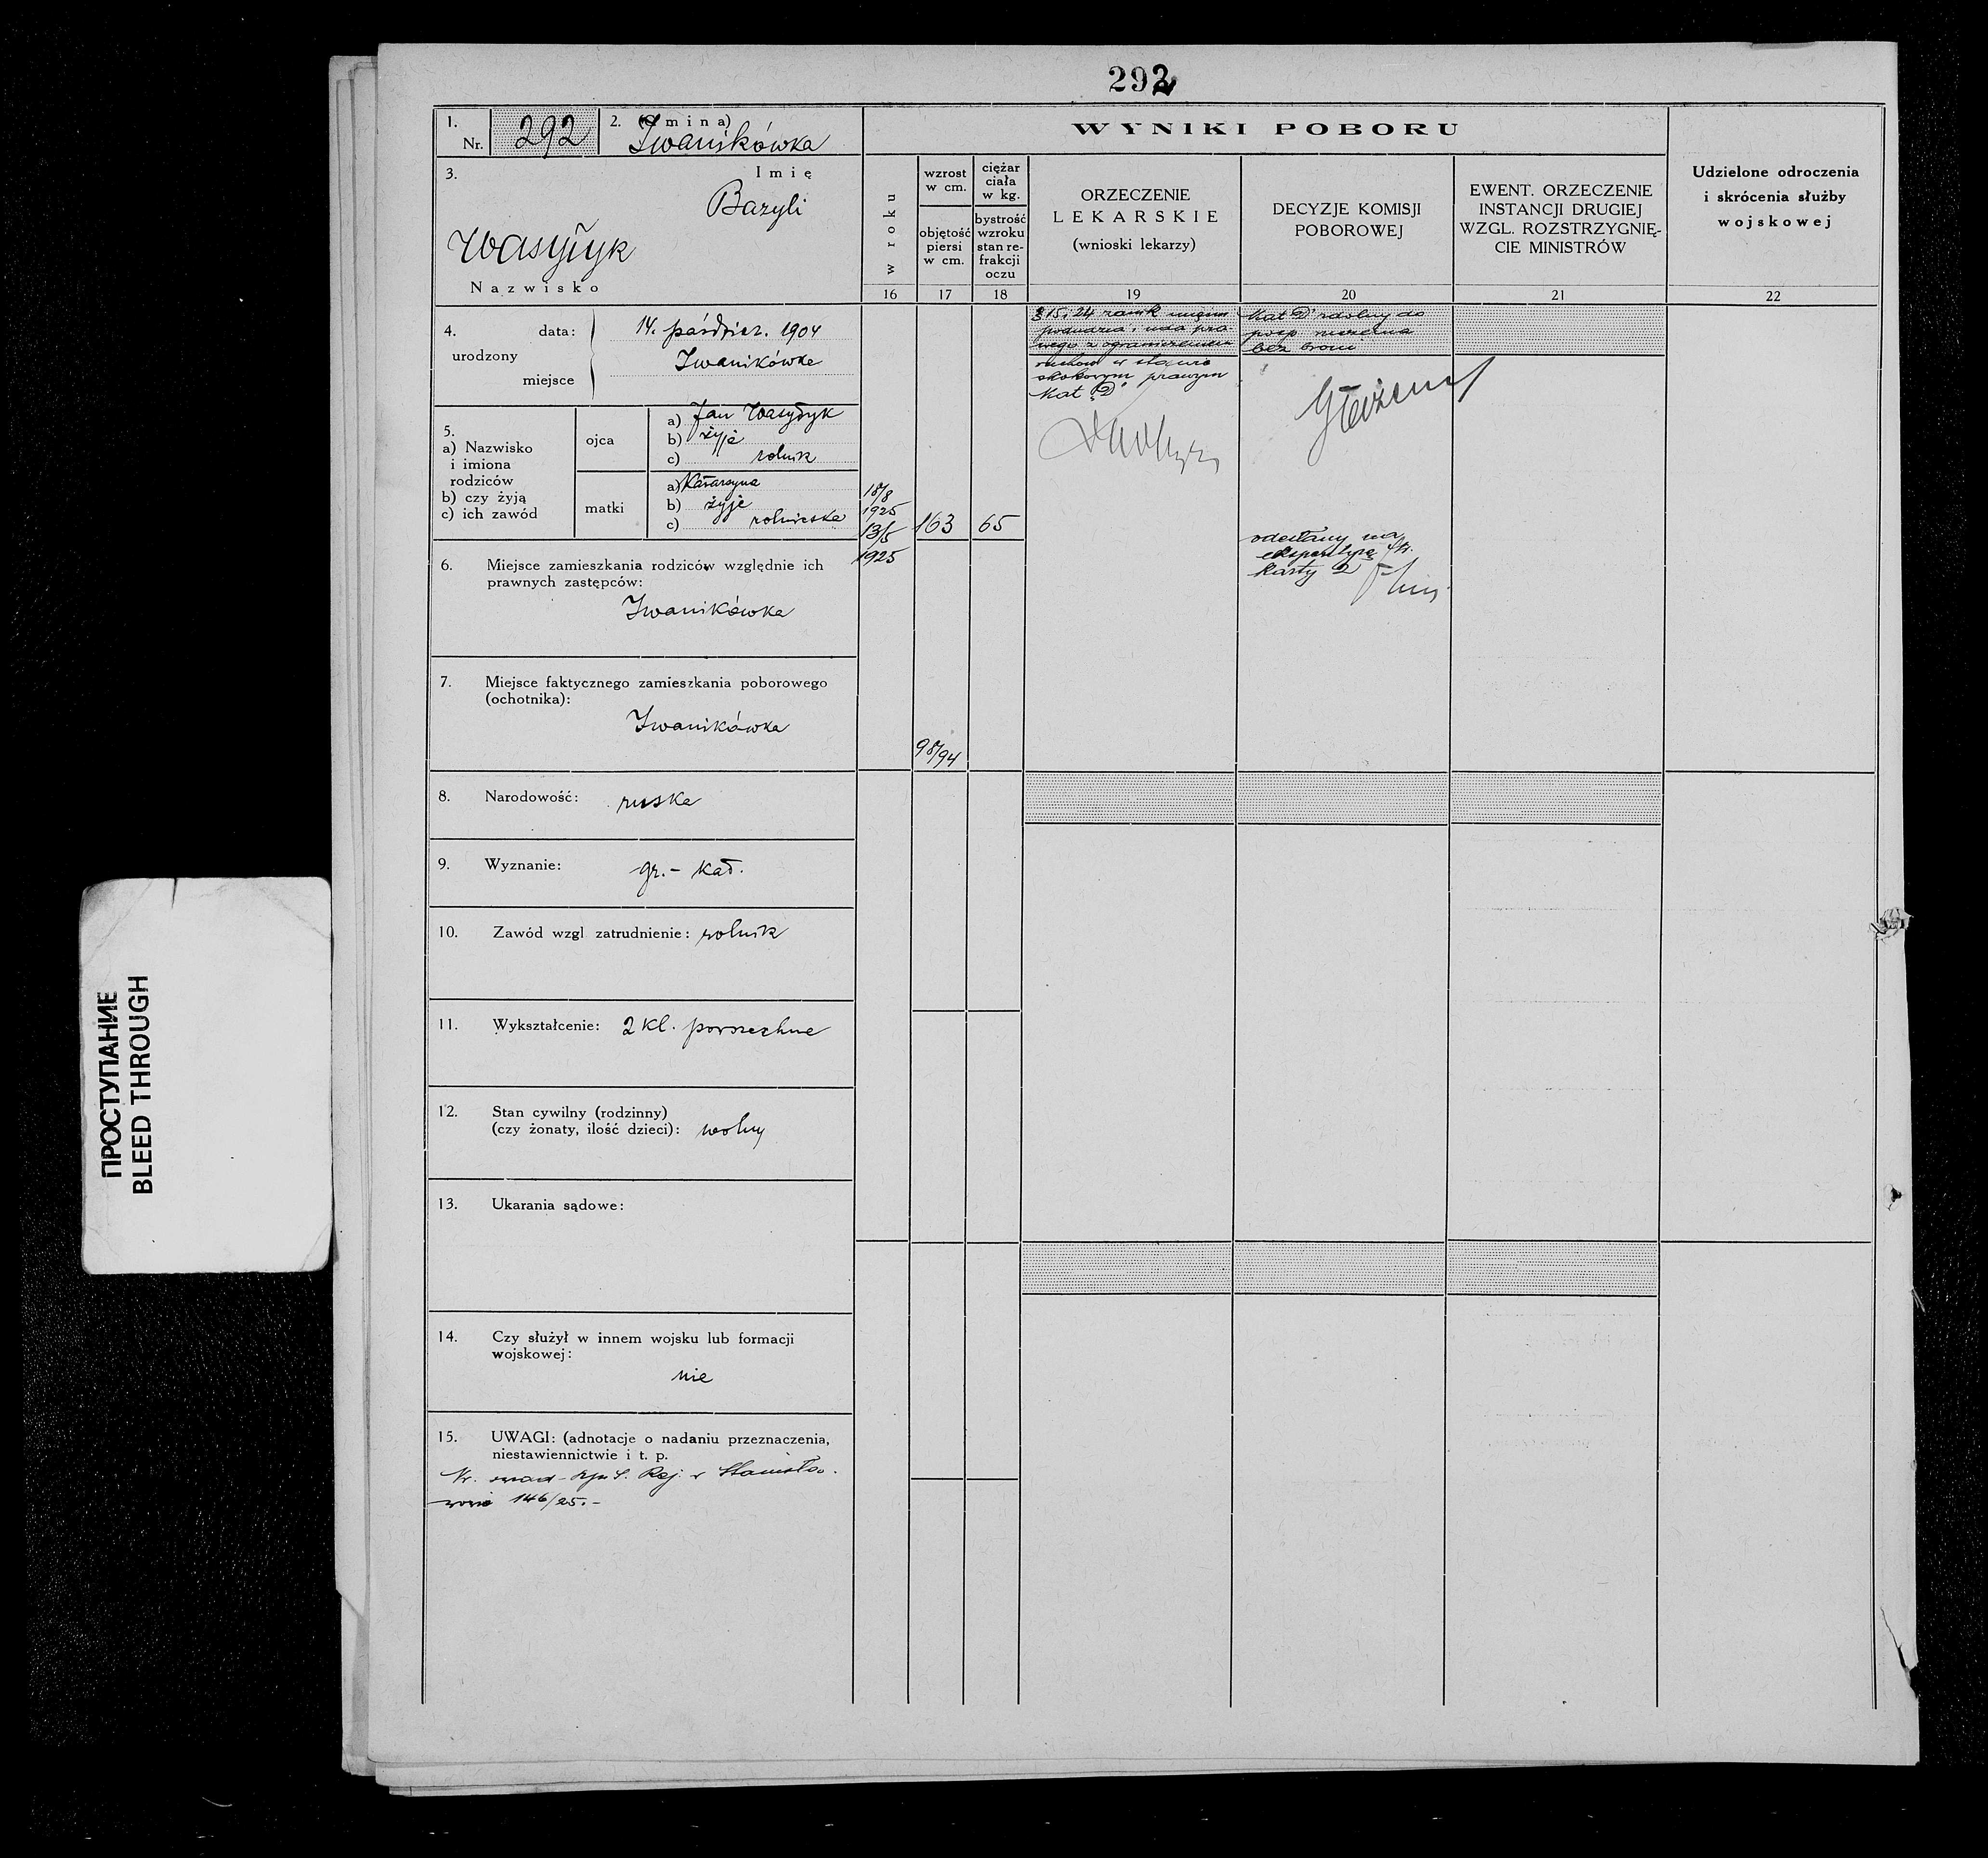 292
1.
Nr. 292
2. (Gmina)
Iwanikówka
3.
Imię
Bazyli
Wasyłyk
Nazwisko
4.
urodzony
data: 14. paździer. 1904
Iwanikówka
miejsce
5.
a) Nazwisko
i imiona
rodziców
b) czy żyją
c) ich zawód
ojca
a) Jan Wasyłyk
b) żyje
c) rolnik
matki
a) Katarzyna
b) żyje
c) rolniczka
6. Miejsce zamieszkania rodziców względnie ich
prawnych zastępców:
Iwanikówka
7. Miejsce faktycznego zamieszkania poborowego
(ochotnika):
Iwanikówka
8. Narodowość: ruska
9. Wyznanie: gr.- kat.
10. Zawód wzgl zatrudnienie: rolnik
11. Wykształcenie: 2 kl. powszechne
12. Stan cywilny (rodzinny)
(czy żonaty, ilość dzieci): wolny
13. Ukarania sądowe:
14. Czy służył w innem wojsku lub formacji
wojskowej:
nie
15. UWAGI: (adnotacje o nadaniu przeznaczenia,
niestawiennictwie i t. p.
Rej. w Stanisła-
wowie 146/25.-
WYNIKI POBORU
w roku
16
wzrost
w cm.
objętość
piersi
w cm.
17
ciężar
ciała
w kg.
bystrość
wzroku
stan re-
frakcji
oczu
18
ORZECZENIE
LEKARSKIE
(wnioski lekarzy)
19
DECYZJE KOMISJI
POBOROWEJ
20
EWENT. ORZECZENIE
INSTANCJI DRUGIEJ
WZGL. ROZSTRZYGNIĘ-
CIE MINISTRÓW
21
Udzielone odroczenia
i skrócenia służby
wojskowej
22
18/8
1925
13/5
1925
163
65
98/94
§ 15, 24 zanik mięśni
podudzia i uda pra
wego z ograniczeniem
ruchów w stawie
skokowym prawym
Kat "D"
Kat "D" zdolny do
posp. ruszenia
bez broni
odesłany na
ekspertyzę
karty 2
ПРОСТУПАНИЕ
BLEED THROUGH